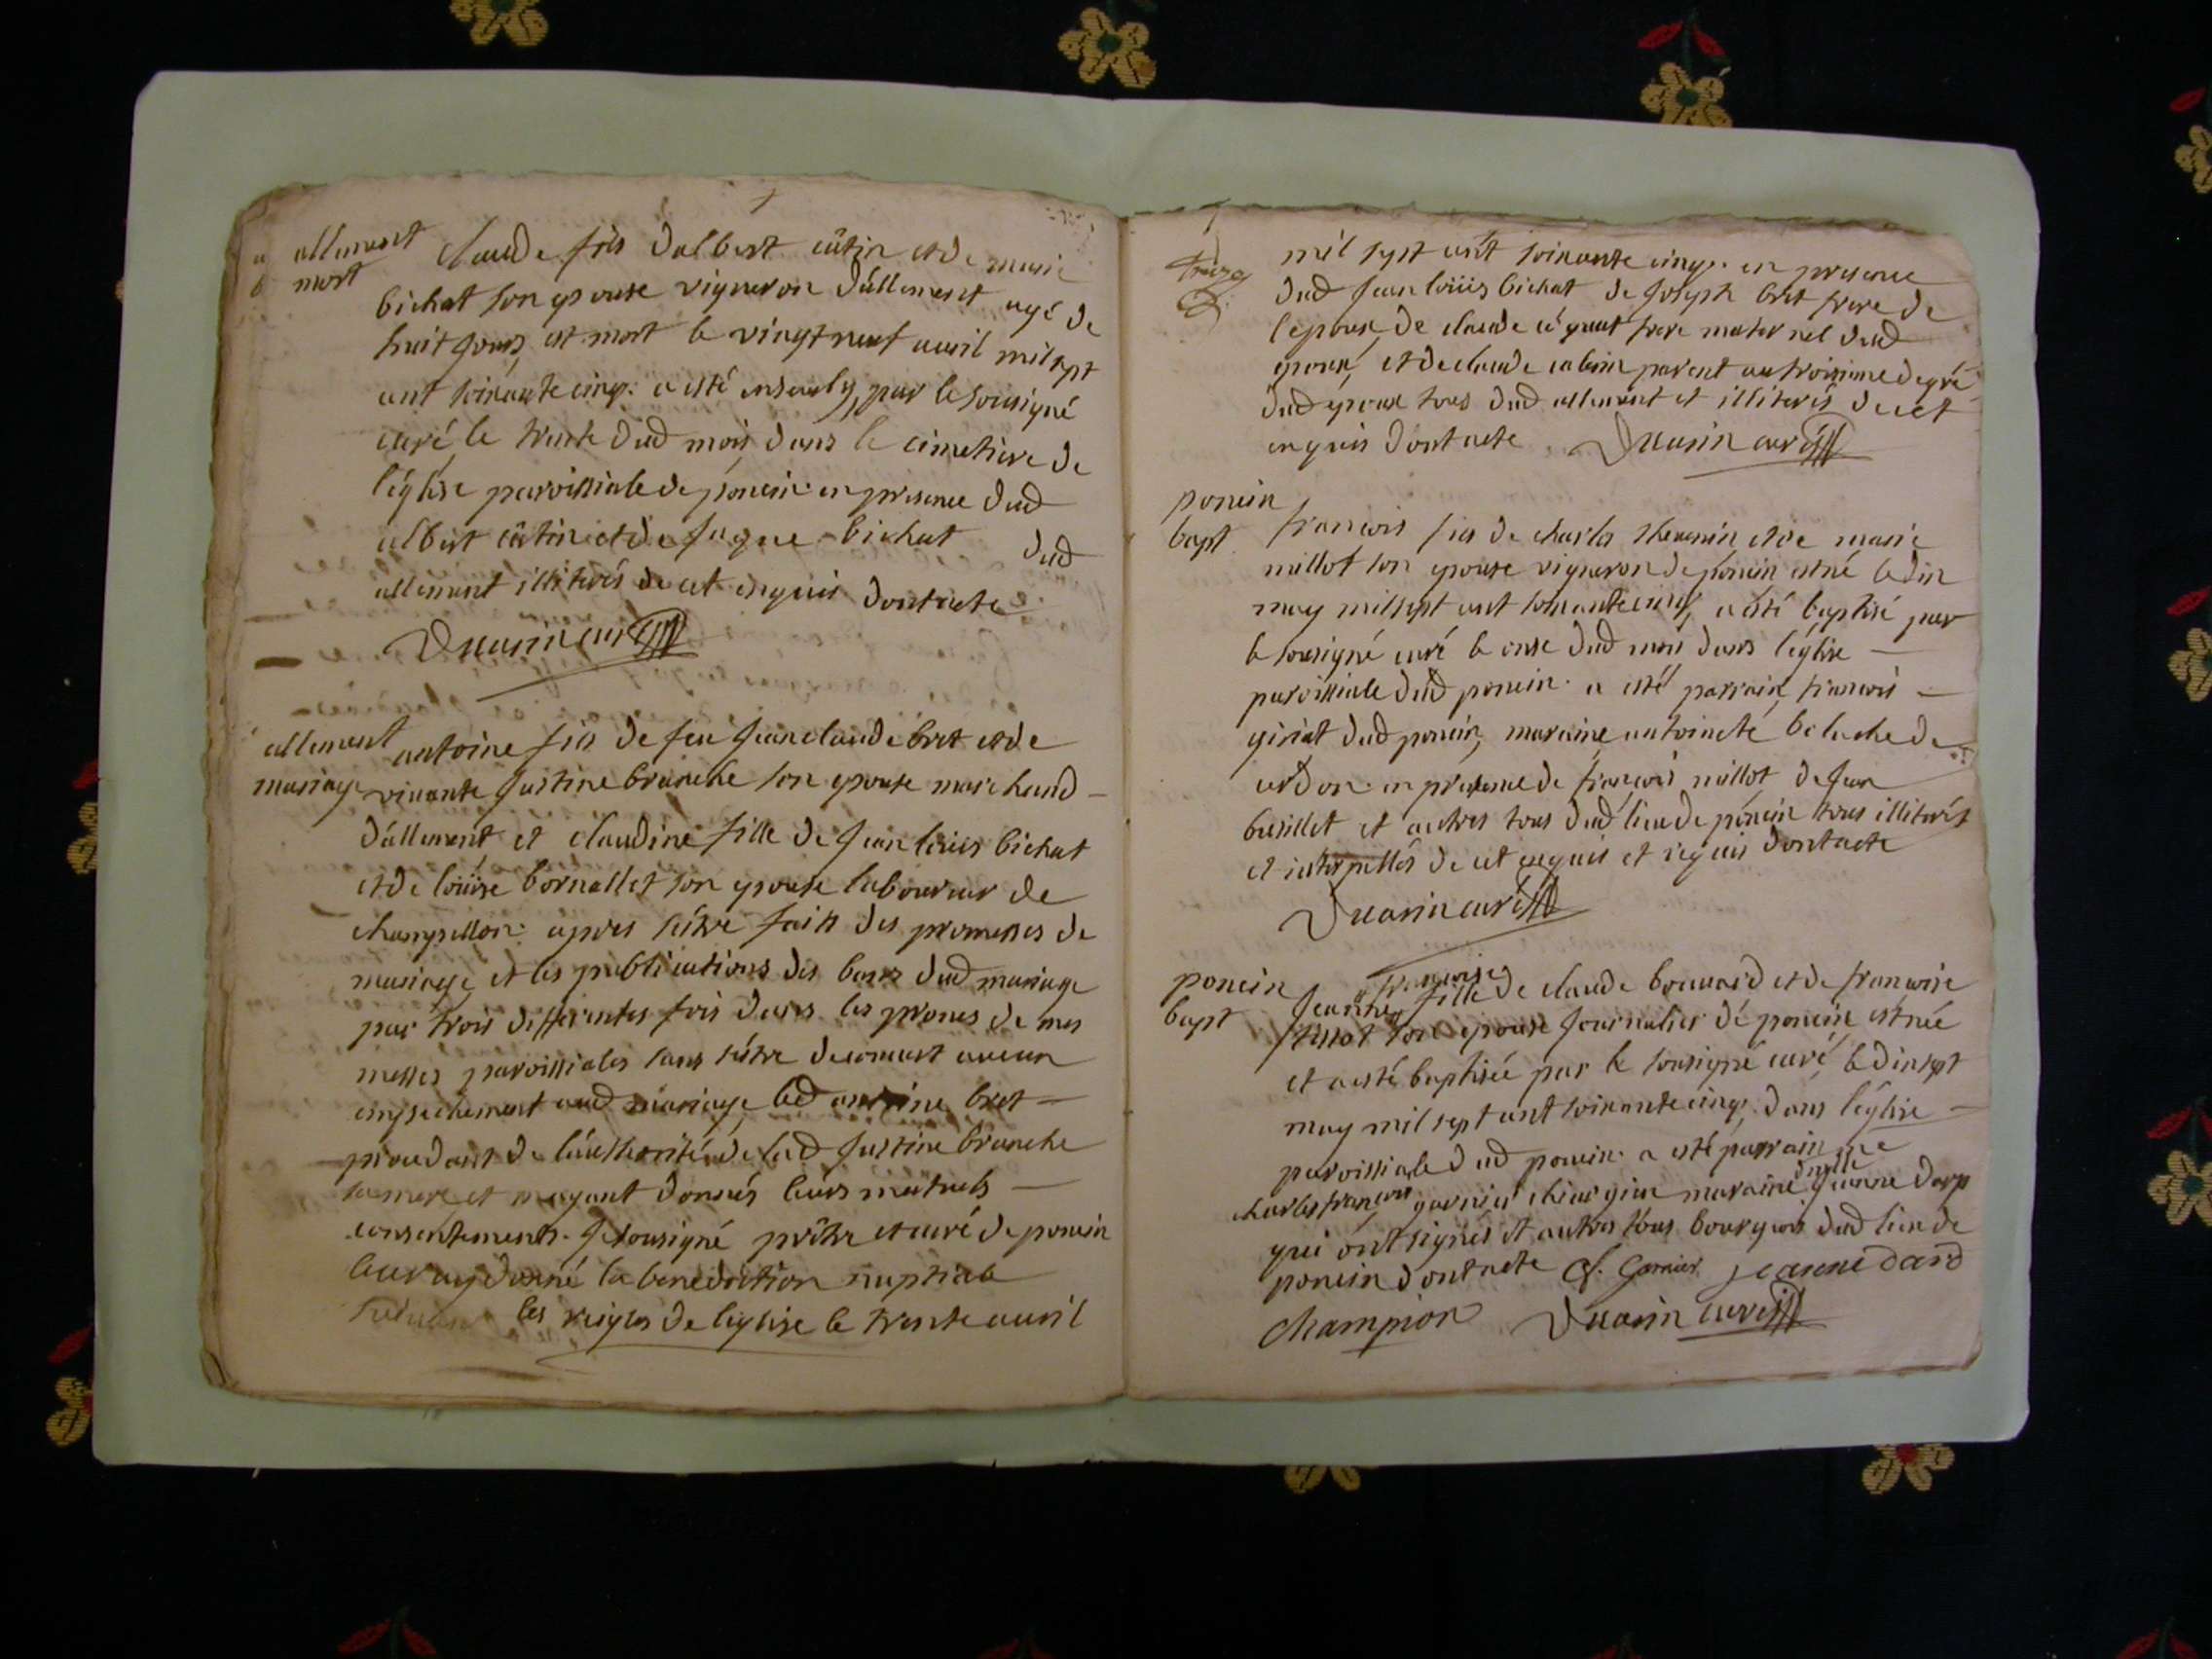 allement
mort
claude fils dalbert cûtin et de marie
bichat son epouse vigneron dállement agé de
huit jours est mort le vingt neuf avril mil sept
cent soixante cinq. a esté ensevely par le sousigné
curé le trente dud mois dans le cimetiere de
l'église paroissiale de poncin en presence dud
albert cûtin et de jaque bichat dud
allement illiterés de cet enquis dont acte
Duarin curé
allement
mariage
antoine fils de feu jean claude bret et de
vivante justine branche son epouse marchand
dállement et claudine fille de jean loüis bichat
et de loüise bornallet son epouse laboureur de
champeillon. apres sêtre faits des promesses de
mariage et les publications des bans dud mariage
par trois differentes fois dans les prones de mes
messes paroissiales sans sêtre decouvert aucun
empechement aud mariage led antoine bret
procedant de láuthorité de lad justine branche
sa mere et mayant donnés leurs mutuels
consentements. Je sousigné prêtre et curé de poncin
leur ay donné la benediction nuptiale
les reigles de leglise le trente avril
treize
mil sept cent soixante cinq. en presence
dud jean loüis bichat de joseph bret frere de
lepoux, de claude frere maternel dud
epoux, et de claude parent au troisieme degré
dud epoux tous dud allement et illiterés de cet
enquis dont acte. Duarin curé
poncin
bapt
francois fils de charles thevenin et de marie
millot son epouse vigneron de poncin est né le dix
may mil sept cent soixante cinq, a esté baptisé par
le sousigné curé le onze dud mois dans léglise
paroissiale dud poncin. a esté parrain francois
giriat dud poncin, maraine antoinete beluche de
cerdon. en presence de francois millot de jean
busillet et autres tous dud lieu de poncin tous illiterés
et interpellés de cet enquis et requis dont acte
Duarin curé
poncin
bapt
francoise
Jeanne fille de claude bouvard et de francoise
tissot son epouse journalier de poncin est née
et a esté baptisée par le sousigné curé le dix sept
may mil sept cent soixante cinq. dans léglise
paroissiale dud poncin. a esté parrain me
charles francois garnier chirurgien maraine dmlle jeanne
qui ont signés et autres tous bourgeois dud lieu de
poncin dont acte Cf. Garnier jeanne dard
Champion Duarin curé